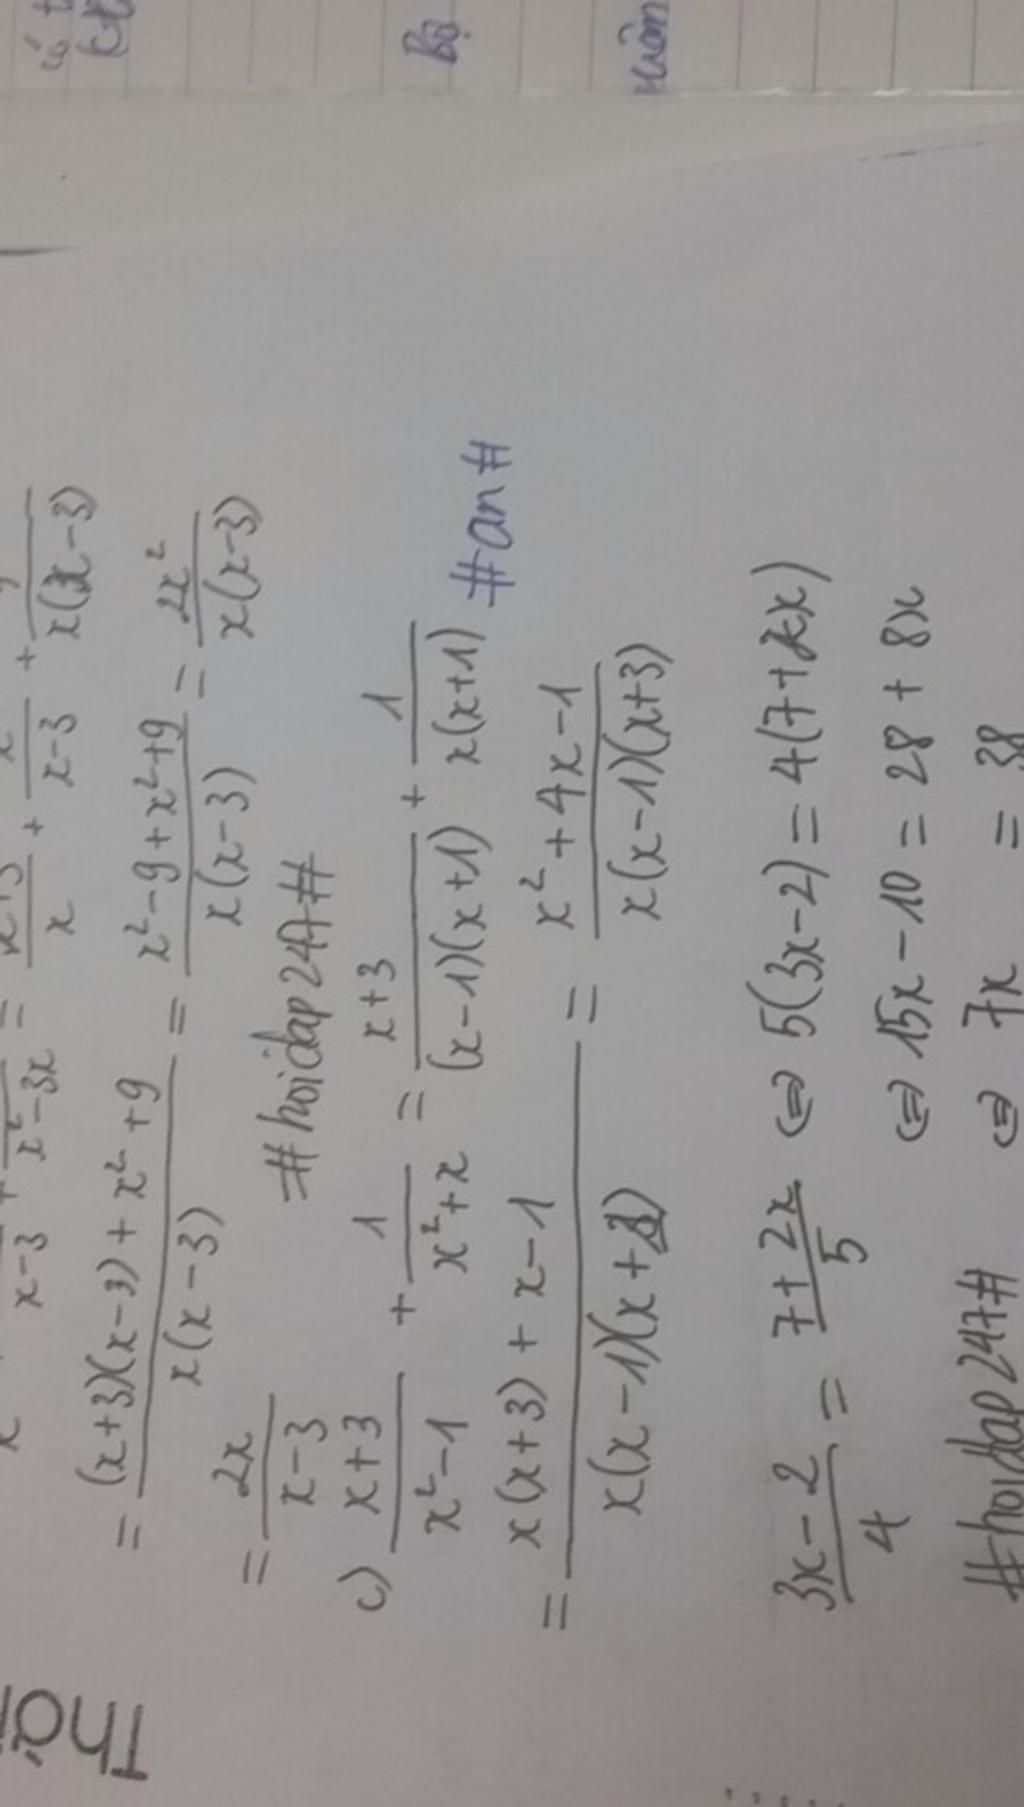 x-3 + x²-3x = x + x-3 + x(x-3)
= (x+3)(x-3) + x² + 9 / x(x-3) = x²-9+x²+9 / x(x-3) = 2x² / x(x-3)
= 2x / x-3
#hoidap247#
c) x+3 / x²-1 + 1 / x²+x = x+3 / (x-1)(x+1) + 1 / x(x+1)
#an#
= x(x+3) + x-1 / x(x-1)(x+3) = x²+4x-1 / x(x-1)(x+3)
3x-2 / 4 = 7+2x / 5 ⇔ 5(3x-2) = 4(7+2x)
⇔ 15x-10 = 28 + 8x
#hoidap247# ⇔ 7x = 38
Bộ